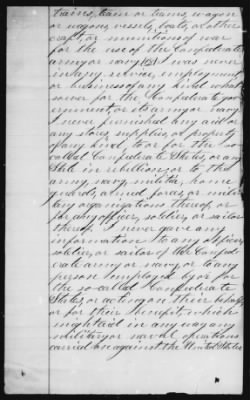 trains, team or teams, wagon
or wagons, vessels, boats, or other
craft, or munitions of war
for the use of the Confederate
army or navy. I was never
in any service, employment
or business of any kind what
soever for the Confederate gov
ernment, or its army or navy
I never furnished any aid or
any stores, supplies, or property
of any kind, to or for the so-
called Confederate States, or any
State in rebellion, or to the
army, navy, militia, home
guards, armed forces or mili-
tary organizations thereof, or
for any officer, soldier, or sailor
thereof. I never gave any
information to any officer,
soldier, or sailor of the Confed
erate army or navy, or to any
person employed by or for
the so-called Confederate
States, or acting on their behalf,
or for their benefit, which
might aid in any way any
military or naval operations
carried on against the United States